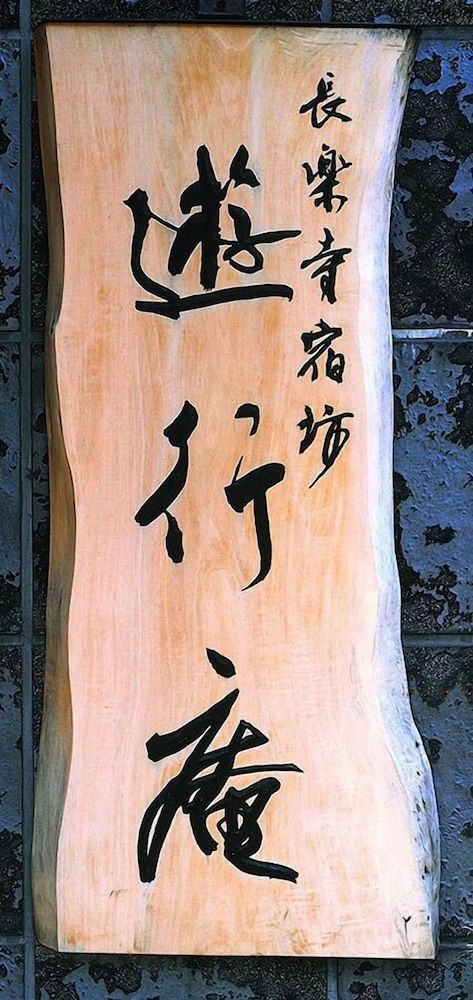 長楽寺宿坊
遊行庵